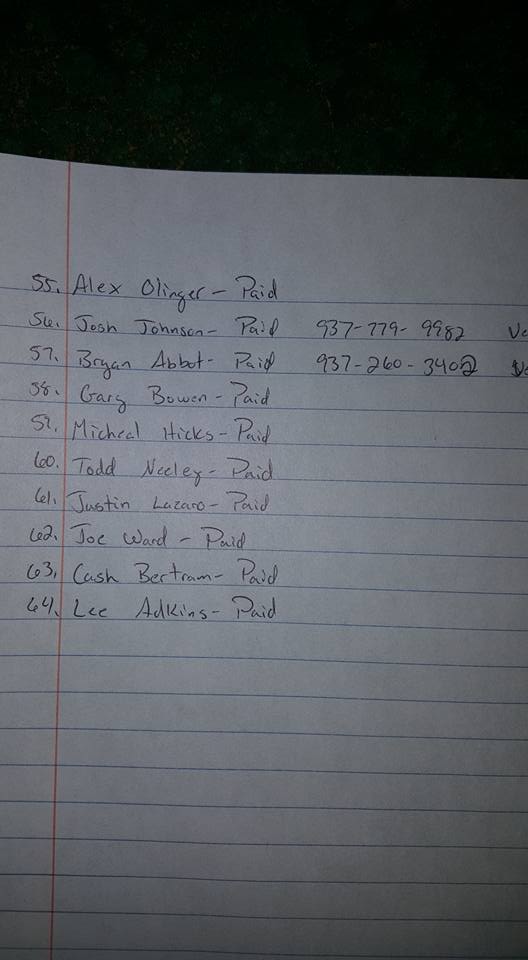 55. Alex Olinger - Paid
56. Josh Johnson - Paid 937-779-9982
57. Bryan Abbot - Paid 937-260-3402
58. Gary Bowen - Paid
59. Micheal Hicks - Paid
60. Todd Neeley - Paid
61. Justin Lazaro - Paid
62. Joe Ward - Paid
63. Cash Bertram - Paid
64. Lee Adkins - Paid